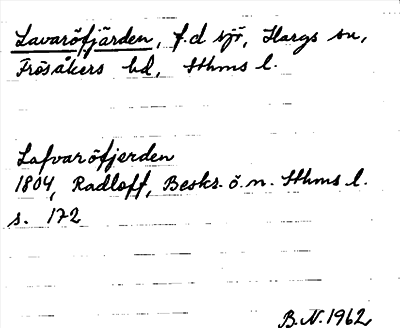 Lavaröfjärden, f.d sjö, Hargs sn,
Frösåkers hd, Sthms l.
Lafvaröfjerden
1804, Radloff, Beskr. ö. n. Sthms l.
s. 172
B.N. 1962